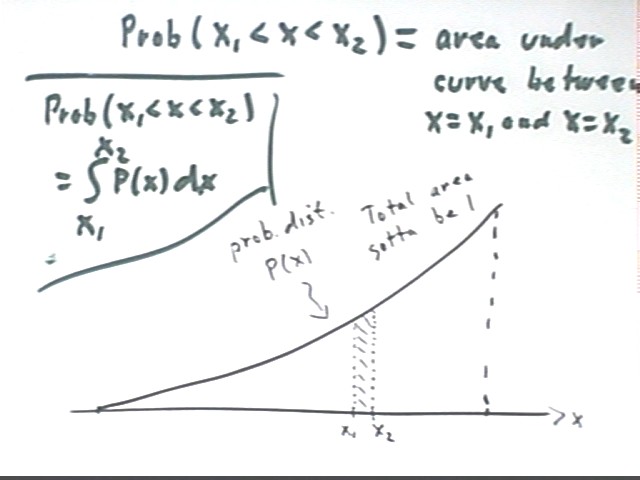 Prob(x₁ < x < x₂) = area under
curve between
x = x₁ and x = x₂
Prob(x₁<x<x₂)
= ∫ P(x) dx
x₂
x₁
prob. dist.
P(x)
Total area
gotta be 1
x₁ x₂
x